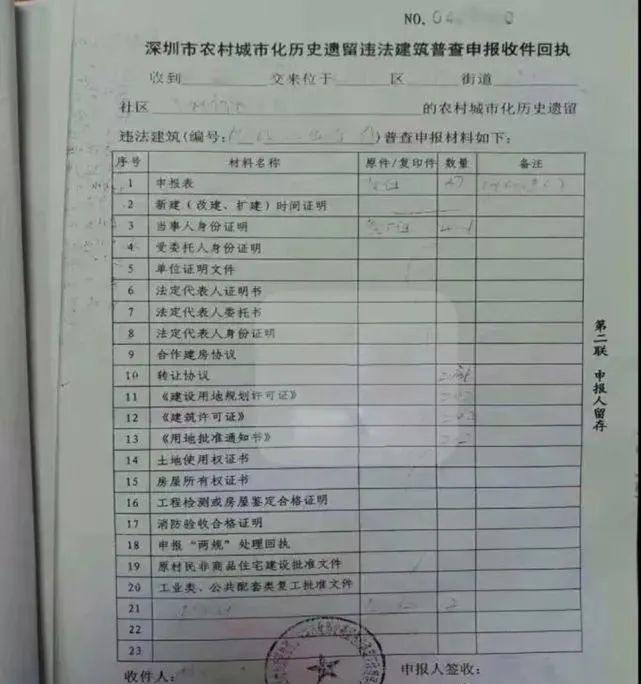 NO.
深圳市农村城市化历史遗留违法建筑普查申报收件回执
收到 交来位于 区 街道
社区 的农村城市化历史遗留
违法建筑(编号: )普查申报材料如下:
序号 材料名称 原件/复印件 数量 备注
1 申报表
2 新建(改建、扩建)时间证明
3 当事人身份证明
4 受委托人身份证明
5 单位证明文件
6 法定代表人证明书
7 法定代表人委托书
8 法定代表人身份证明
9 合作建房协议
10 转让协议
11 《建设用地规划许可证》
12 《建筑许可证》
13 《用地批准通知书》
14 土地使用权证书
15 房屋所有权证书
16 工程检测或房屋鉴定合格证明
17 消防验收合格证明
18 申报“两规”处理回执
19 原村民非商品住宅建设批准文件
20 工业类、公共配套类复工批准文件
21
22
23
收件人: 申报人签收:
第二联 申报人留存